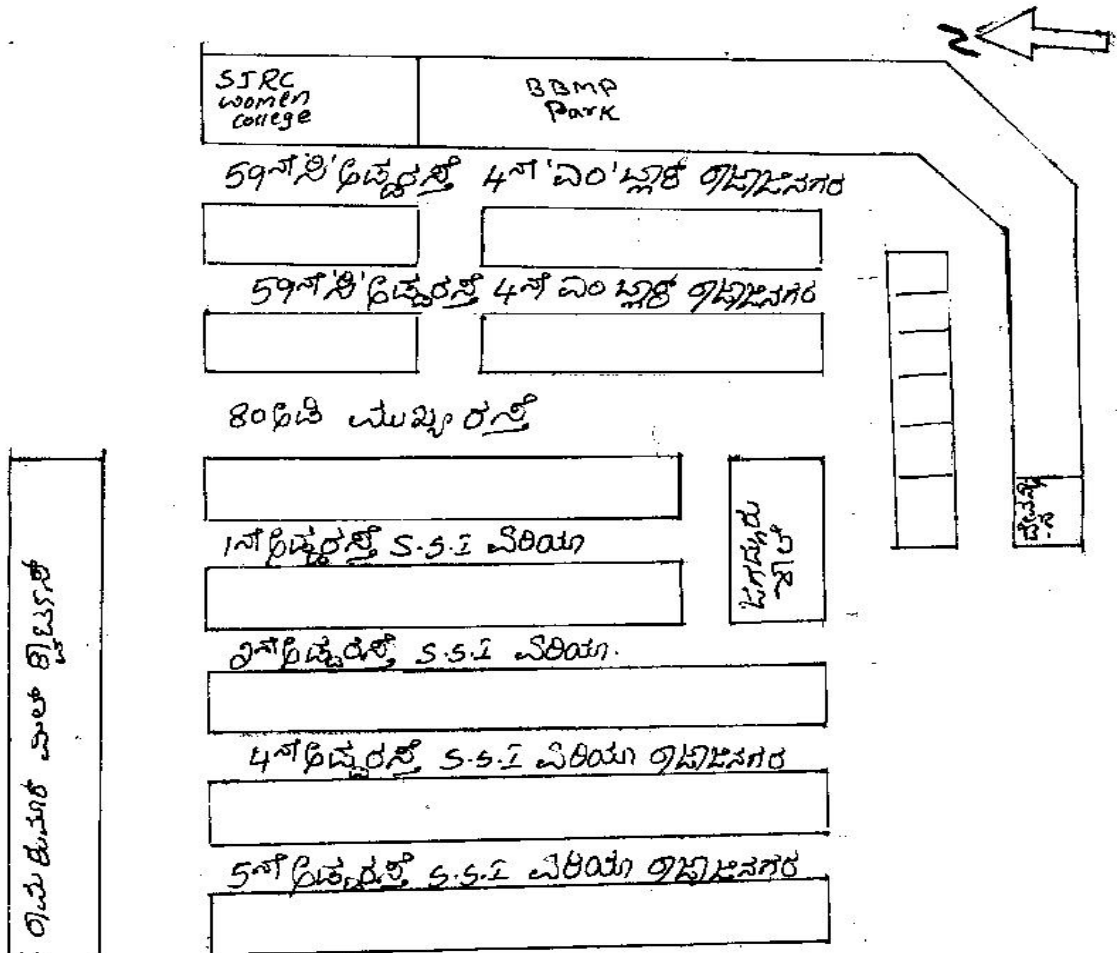 N
SJRC
women
college
BBMP
Park
59ನೇ 'ಸಿ' ಅಡ್ಡರಸ್ತೆ 4ನೇ 'ಎಂ' ಬ್ಲಾಕ್ ರಾಜಾಜಿನಗರ
59ನೇ 'ಸಿ' ಅಡ್ಡರಸ್ತೆ 4ನೇ ಎಂ ಬ್ಲಾಕ್ ರಾಜಾಜಿನಗರ
80 ಅಡಿ ಮುಖ್ಯ ರಸ್ತೆ
1ನೇ ಅಡ್ಡರಸ್ತೆ S.S.I ಏರಿಯಾ
2ನೇ ಅಡ್ಡರಸ್ತೆ S.S.I ಏರಿಯಾ.
4ನೇ ಅಡ್ಡರಸ್ತೆ S.S.I ಏರಿಯಾ ರಾಜಾಜಿನಗರ
5ನೇ ಅಡ್ಡರಸ್ತೆ S.S.I ಏರಿಯಾ ರಾಜಾಜಿನಗರ
ದೇವಸ್ಥಾ
-ನ
ರಾಮಕುಮಾರ್ ಮಿಲ್